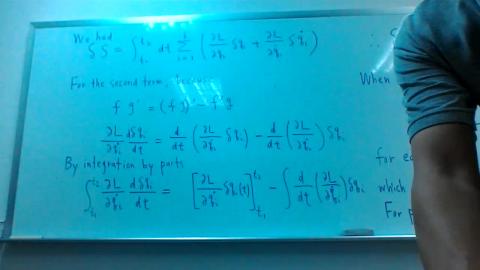 We had
δS = ∫_{t₁}^{t₂} dt Σ_{i=1} ( ∂L/∂q_i δq_i + ∂L/∂q̇_i δq̇_i ) ∴
For the second term, because
f g' = (f g)' − f' g
∂L/∂q̇_i dδq_i/dt = d/dt ( ∂L/∂q̇_i δq_i ) − d/dt ( ∂L/∂q̇_i ) δq_i
By integration by parts
∫_{t₁}^{t₂} ∂L/∂q̇_i dδq_i/dt = [ ∂L/∂q̇_i δq_i(t) ]_{t₁}^{t₂} − ∫ d/dt ( ∂L/∂q̇_i ) δq_i
When
for
which
For